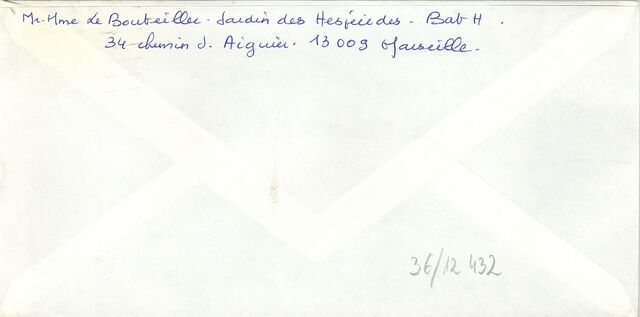 Mr. Mme Le Bouteiller. Jardin des Hespérides. Bat H.
34 chemin J. Aiguier. 13009 Marseille.
36/12 432